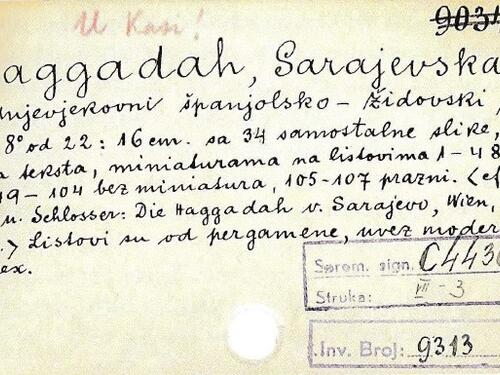 U Kasi!
903
aggadah, Sarajevska
njevjekovni španjolsko – židovski,
8° od 22 : 16 cm. sa 34 samostalne slike,
a teksta, miniaturama na listovima 1 – 48
49 – 104 bez miniatura, 105 – 107 prazni. <cf
u. Schlosser: Die Haggadah v. Sarajevo, Wien,
.> Listovi su od pergamene, uvez moder
ex.
Sprem. sign. C443
Struka: VII – 3
Inv. Broj: 9313